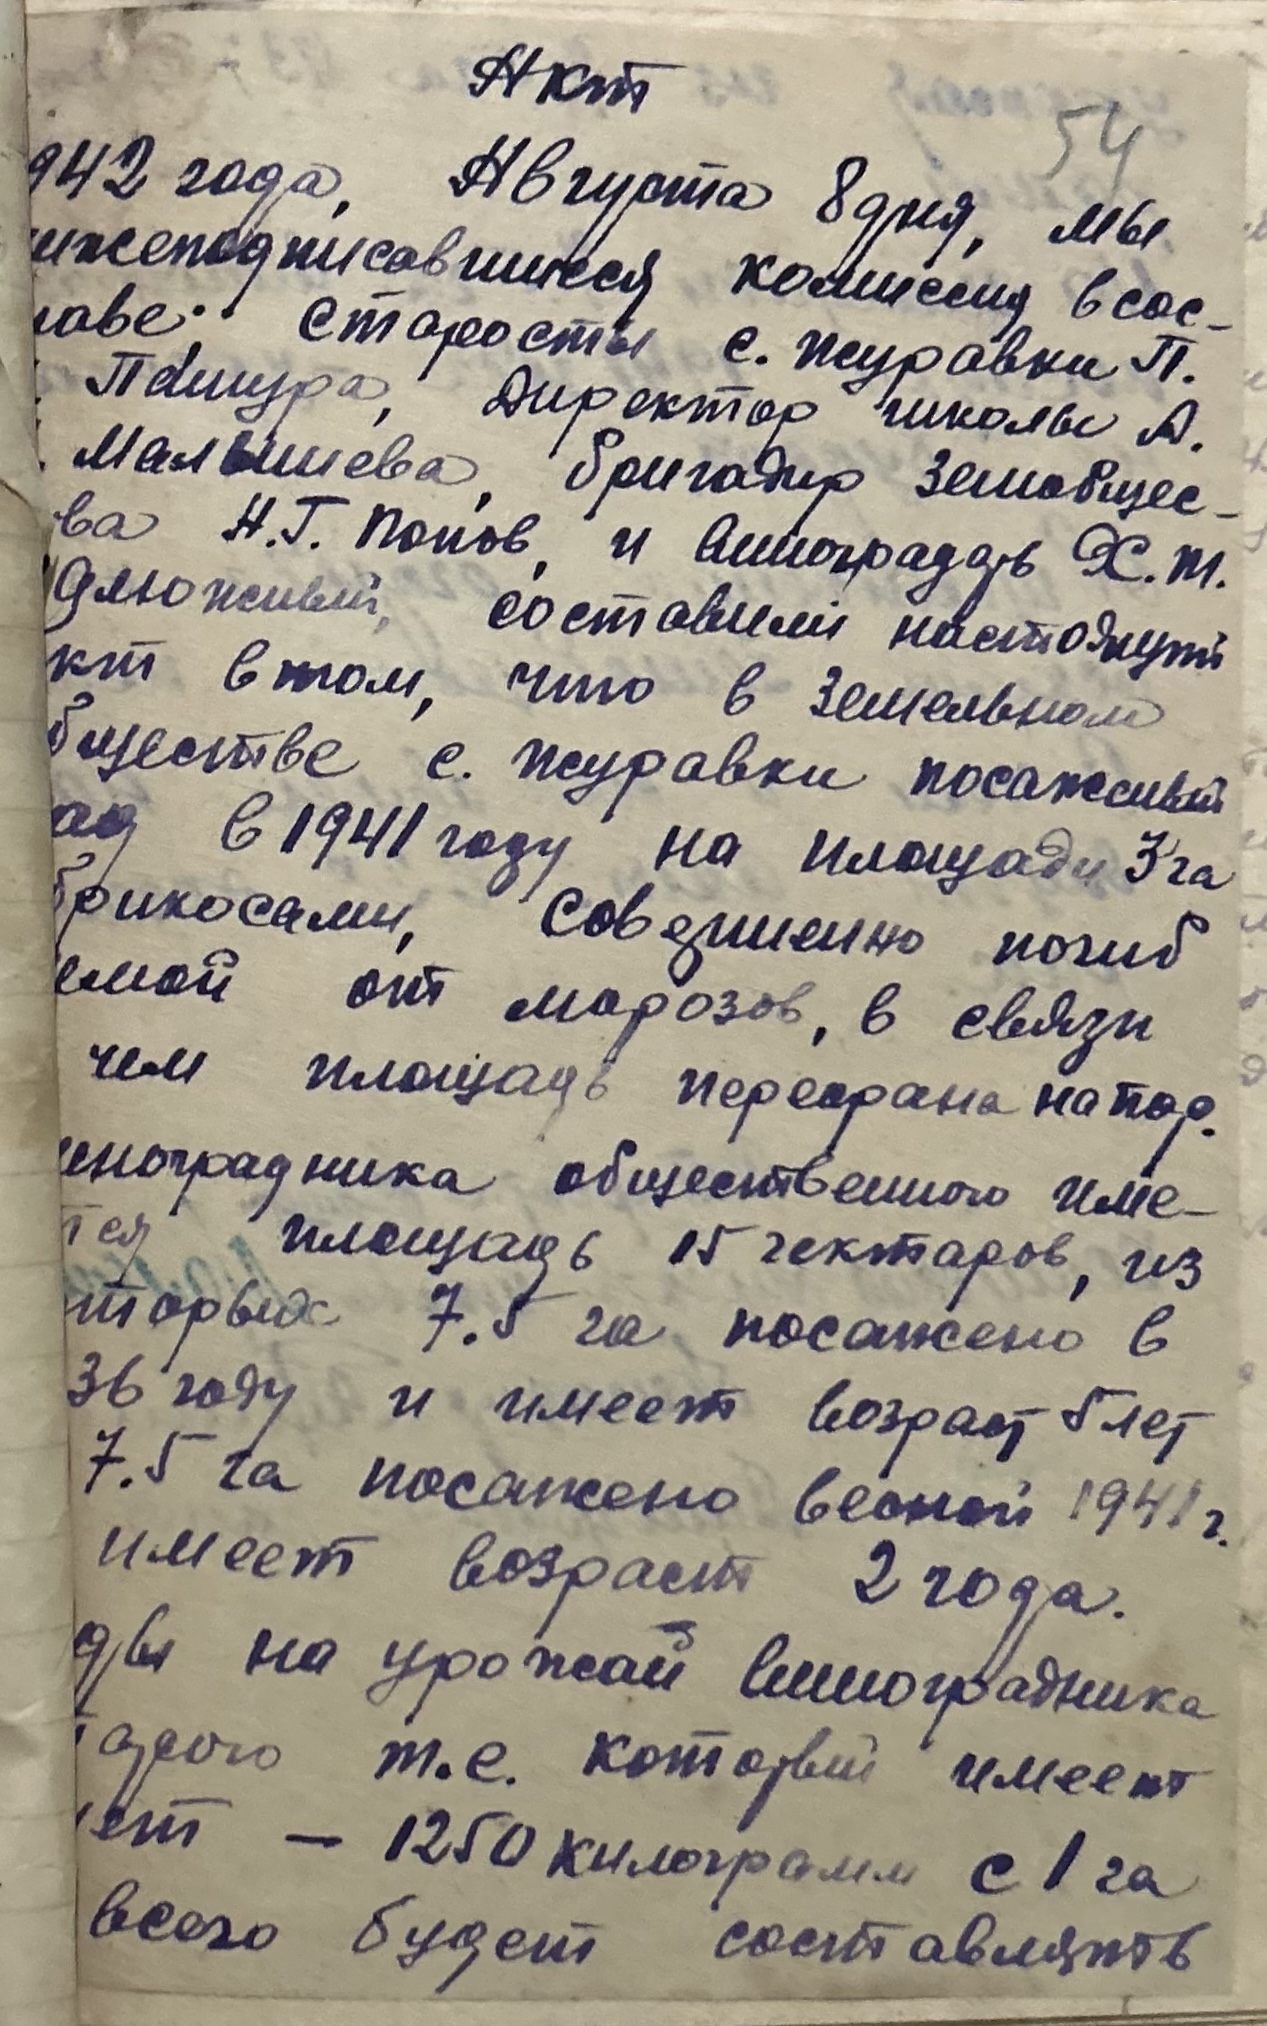 Акт
54
942 года, Августа 8 дня, мы
ижеподписавшиеся комиссия в сос-
таве: Старосты с. Журавки П.
Пащура, Директор школы А.
. Малышева, бригадир Земобщес-
ва Н.Г. Попов, и виноградарь Х.т.
составили настоящий
кт в том, что в Земельном
бществе с. Журавки посаженый
ад в 1941 году на площади 3 га
брикосами, Совершенно погиб
имой от морозов, в связи
чем площадь переорана на пор.
иноградника общественного име-
тся площадь 15 гектаров, из
торых 7.5 га посажено в
36 году и имеет возраст 5 лет
7.5 га посажено весной 1941 г.
имеет возраст 2 года.
ды на урожай виноградника
тарого т.е. который имеет
лет – 1250 килограмм с 1 га
всего будет составлять